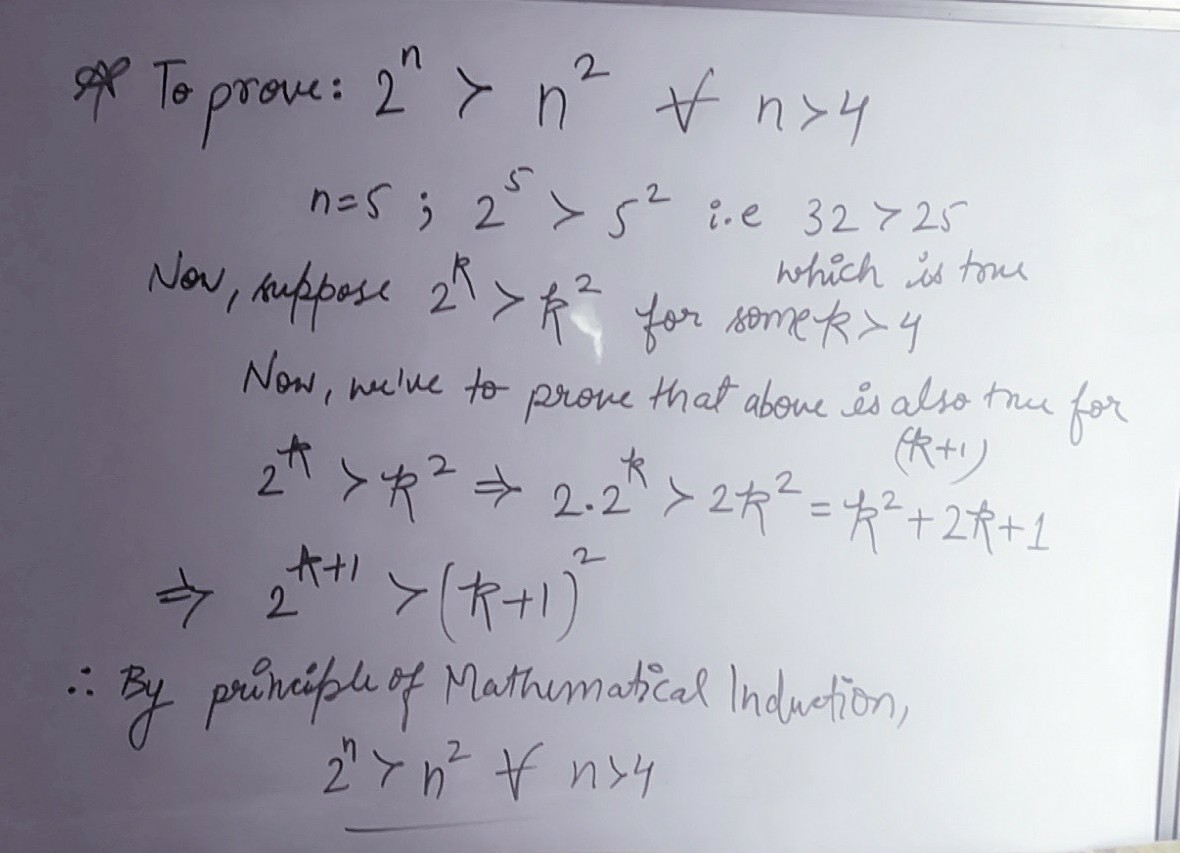 * To prove: 2ⁿ > n² ∀ n>4
n=5 ; 2⁵ > 5² i.e 32 > 25
which is true
Now, suppose 2ᵏ > k² for some k>4
Now, we've to prove that above is also true for
(k+1)
2ᵏ > k² ⇒ 2.2ᵏ > 2k² = k²+2k+1
⇒ 2ᵏ⁺¹ > (k+1)²
∴ By principle of Mathematical Induction,
2ⁿ > n² ∀ n>4